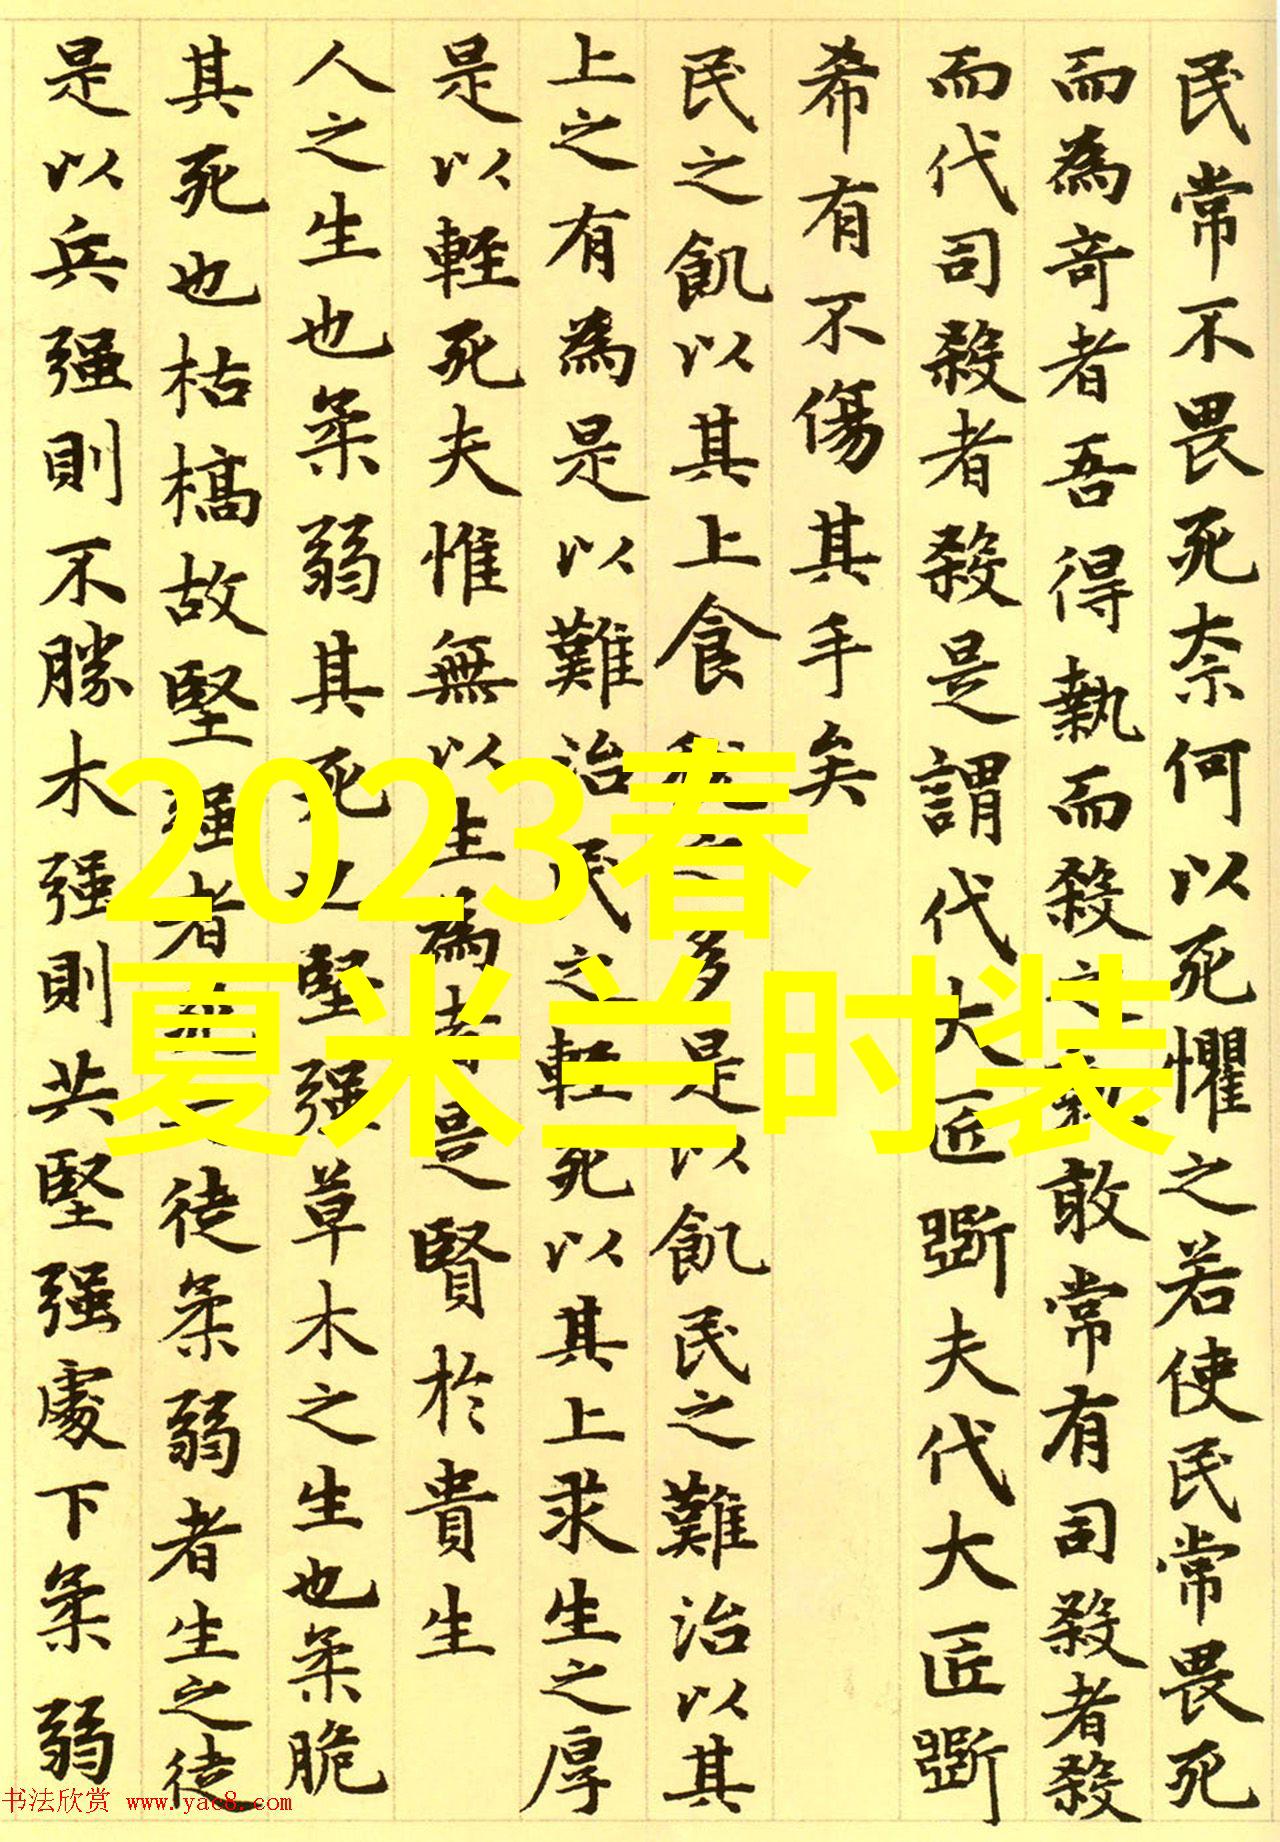 民常不畏死奈何以死懼之若使民常畏死
而為奇者吾得執而殺之孰敢常有司殺者殺
而代司殺者殺是謂代大匠斲夫代大匠斲
希有不傷其手矣
民之飢以其上食稅之多是以飢民之難治以其
上之有為是以難治民之輕死以其上求生之厚
是以輕死夫惟無以生為者是賢於貴生
人之生也柔弱其死也堅强草木之生也柔脆
其死也枯槁故堅强者死之徒柔弱者生之徒
是以兵强則不勝木强則共堅强處下柔弱
2023春
夏米兰时装
书法欣赏 www.yac8.com